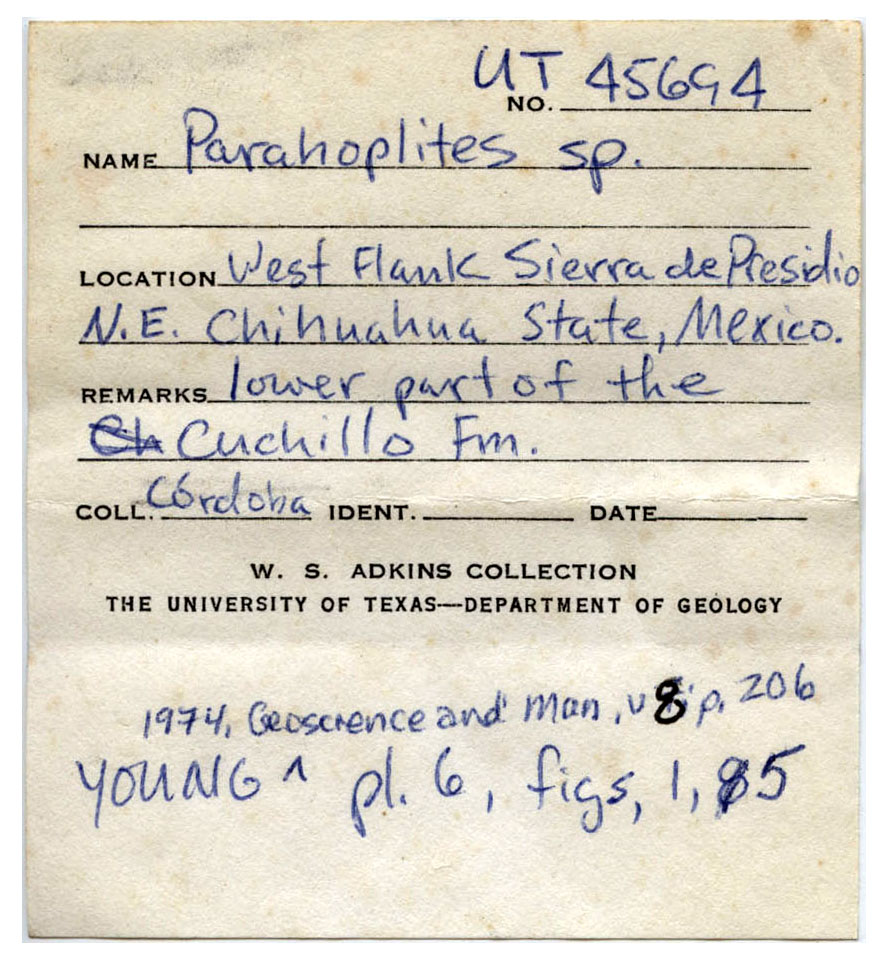 UT 45694
NO.
NAME Parahoplites sp.
LOCATION West Flank Sierra de Presidio
N.E. Chihuahua State, Mexico.
REMARKS lower part of the
Ch Cuchillo Fm.
COLL. Córdoba IDENT. DATE
W. S. ADKINS COLLECTION
THE UNIVERSITY OF TEXAS—DEPARTMENT OF GEOLOGY
1974, Geoscience and Man, v 8, p. 206
YOUNG ^ pl. 6, figs, 1, 5